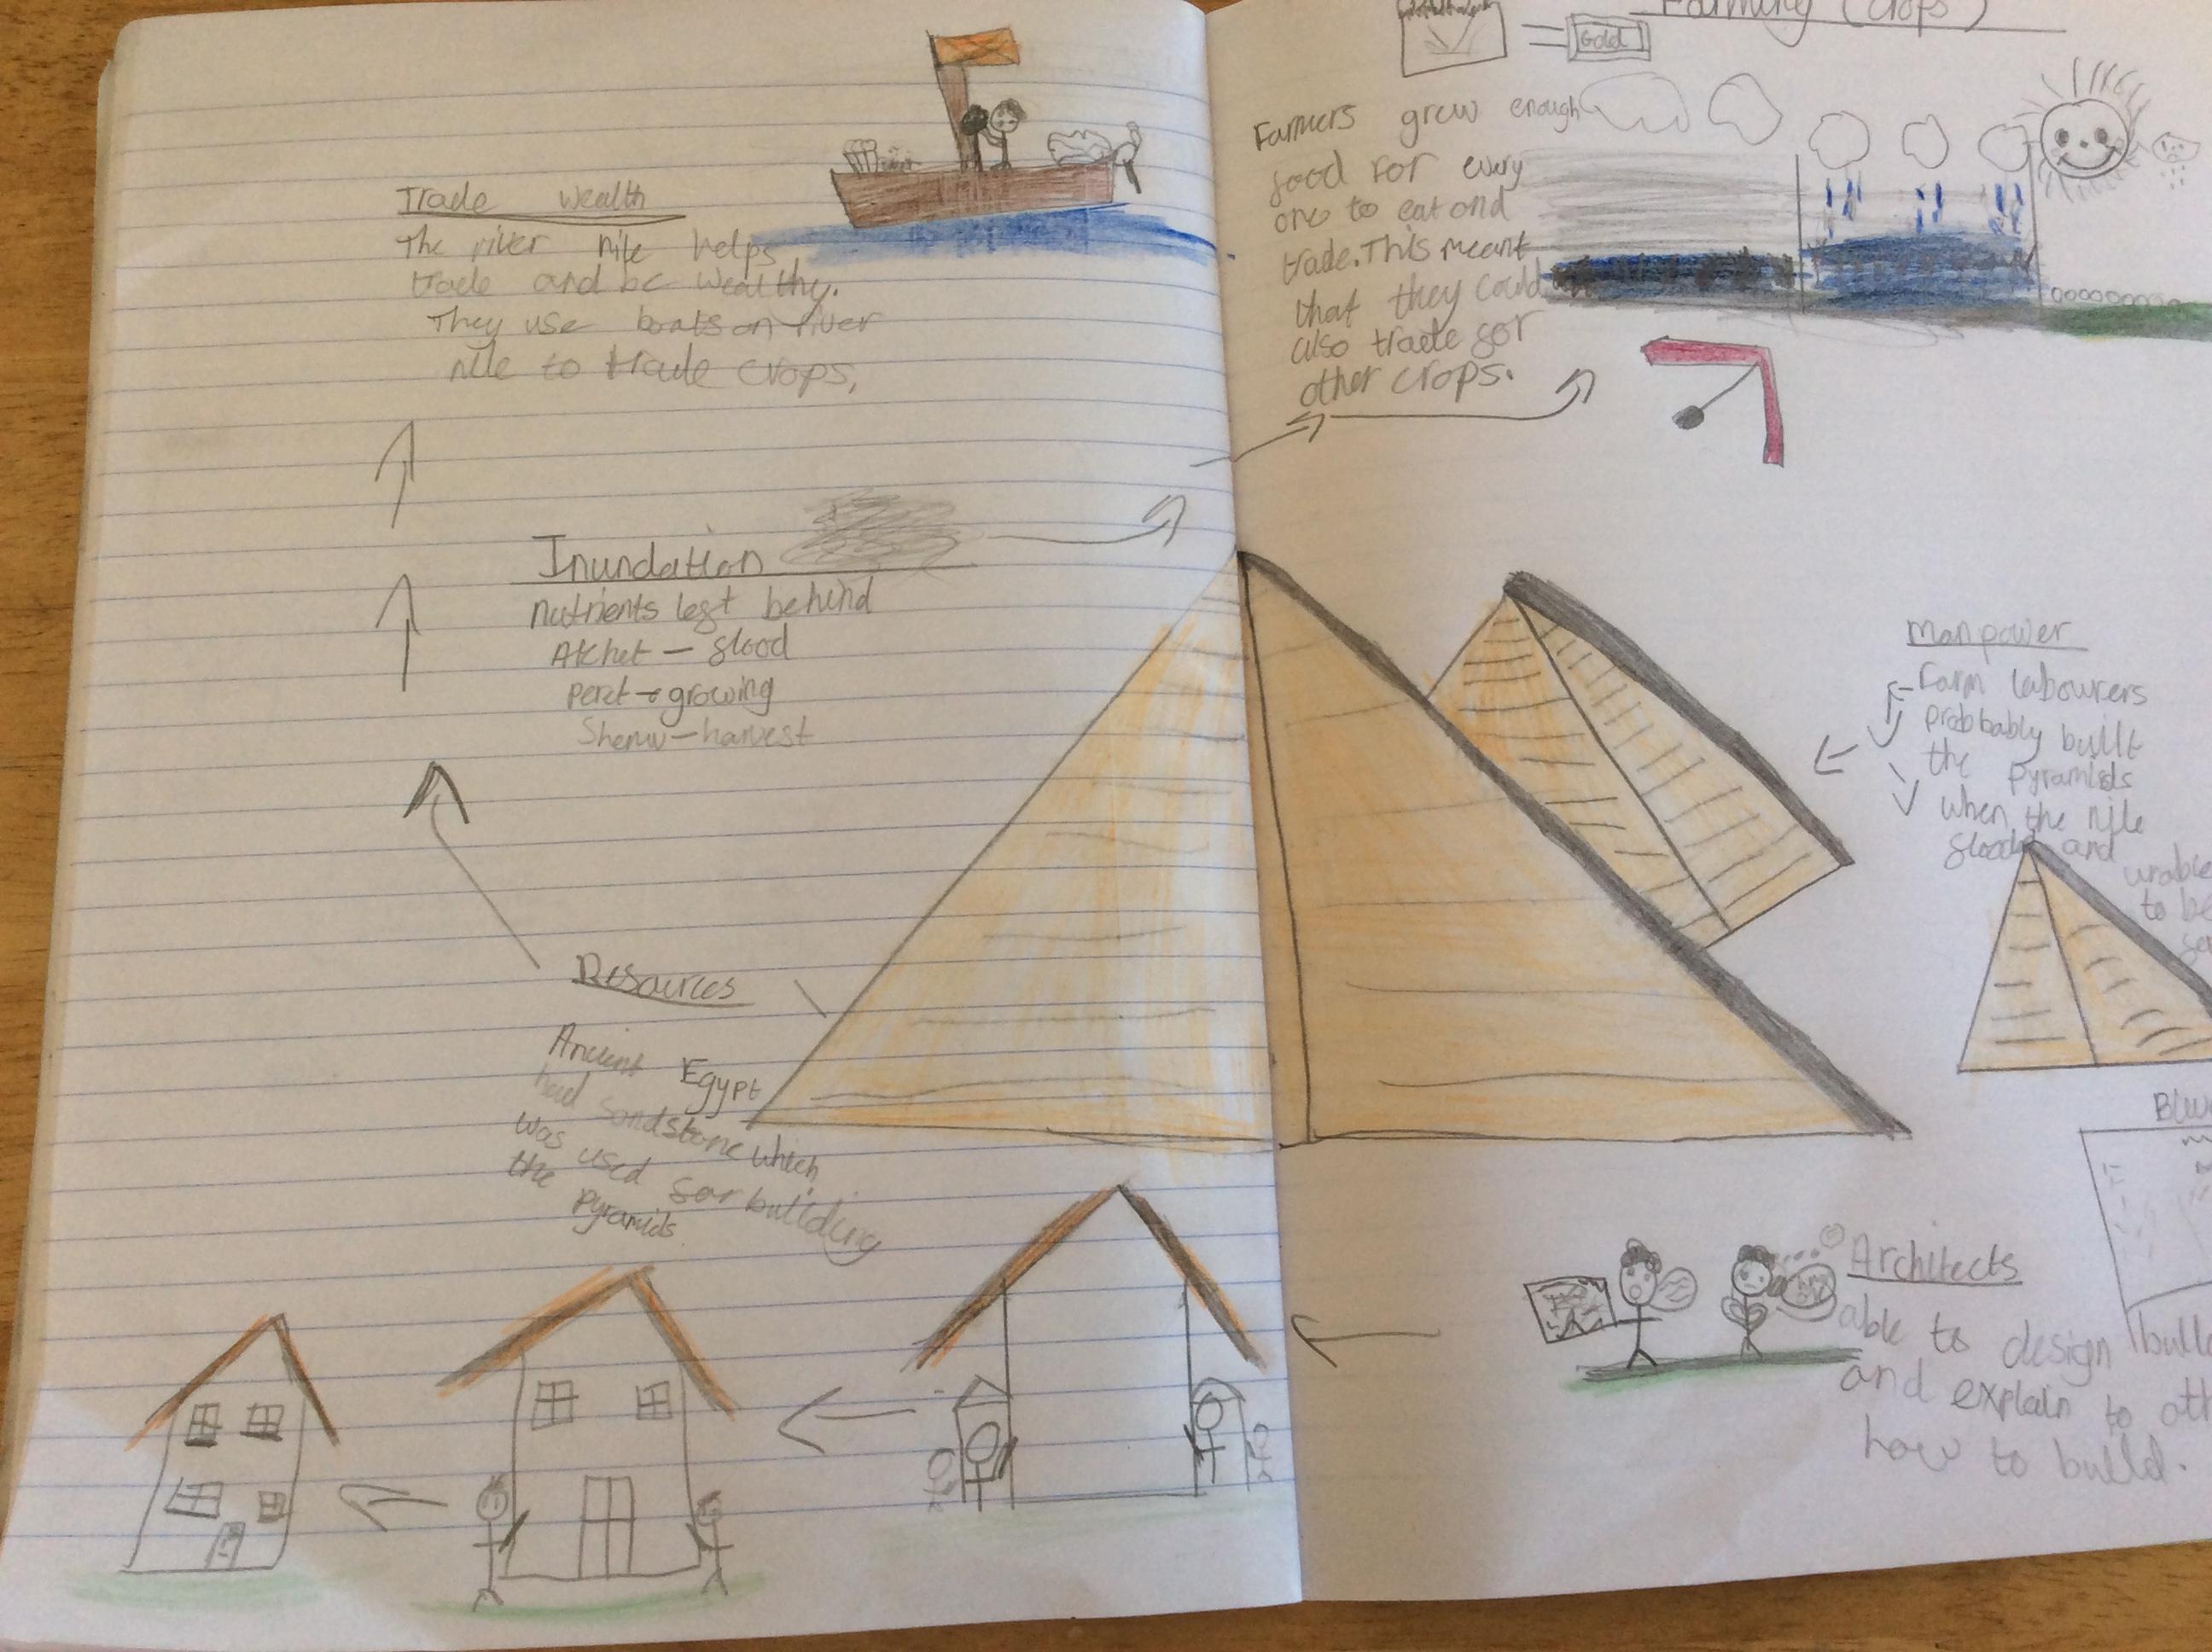 Trade wealth
The river nile helps
trade and be wealthy.
They use boats on river
nile to trade crops,
Inundation
nutrients left behind
Akhet - flood
Peret → growing
Shemu - harvest
Resources
Ancient Egypt
had sandstone which
was used for building
the pyramids.
Farming (crops)
Gold
Farmers grew enough
food for every
one to eat and
trade. This meant
that they could
also trade for
other crops.
Manpower
Farm labourers
probably built
the pyramids
when the nile
floods and
unable
to be
Architects
able to design
and explain to
how to build.